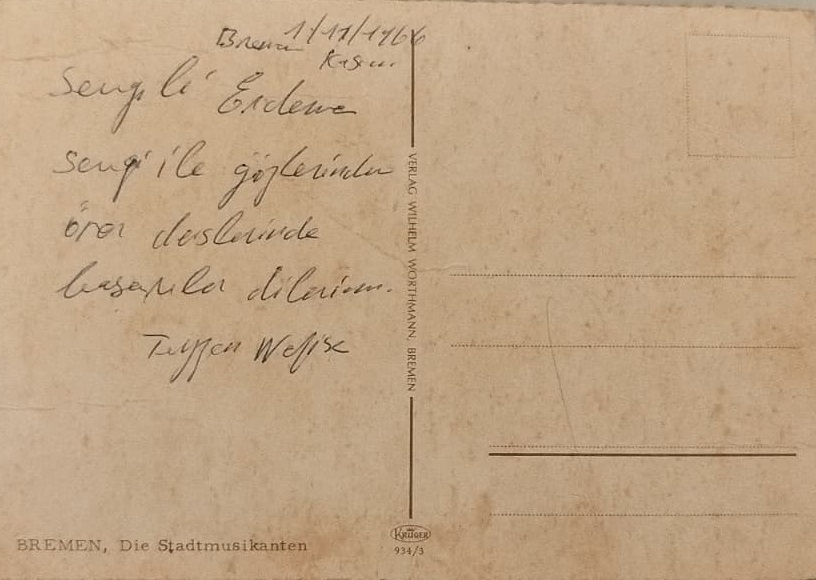 Bremen 1/11/1966
Kasım
Sevgili Erdeme
Sevgi ile gözlerinden
öper derslerinde
başarılar dilerim.
VERLAG WILHELM WORTHMANN, BREMEN
BREMEN, Die Stadtmusikanten
KRÜGER
934/3